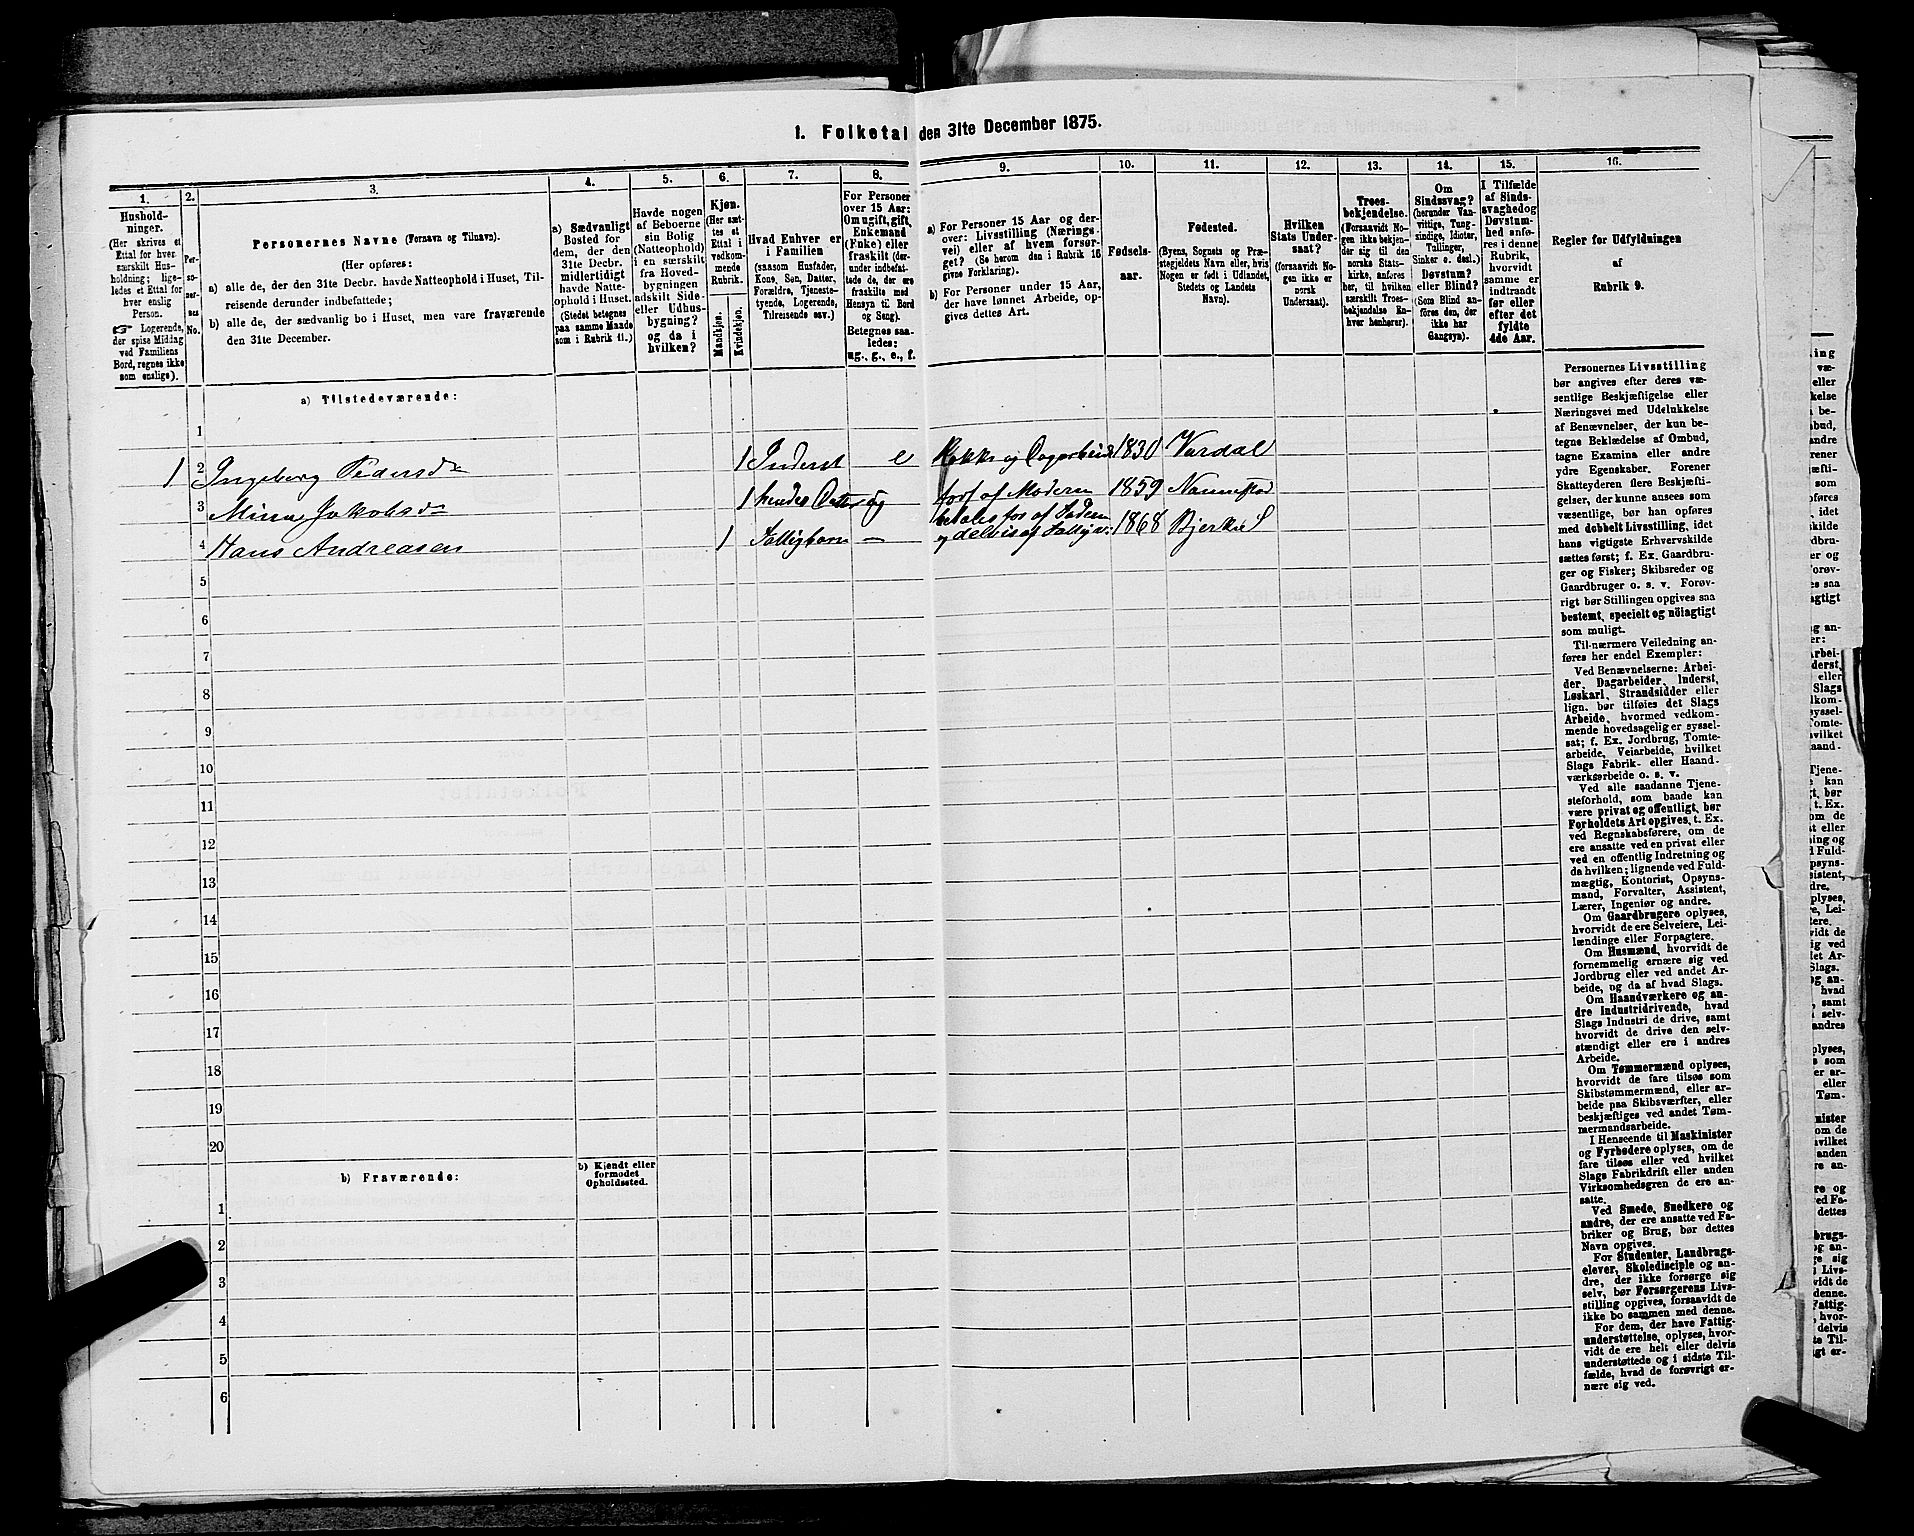 1. Folketal den 31te December 1875.
1.
Hushold-
ninger.
(Her skrives et
Ettal for hver
særskilt Hus-
holdning; lige-
ledes et Ettal for
hver enslig
Person.
☞ Logerende,
der spise Middag
ved Familiens
Bord, regnes ikke
som enslige).
2.
Per-
so-
ner-
nes
No.
3.
Personernes Navne (Fornavn og Tilnavn).
(Her opføres:
a) alle de, der den 31te Decbr. havde Natteophold i Huset, Til-
reisende derunder indbefattede;
b) alle de, der sædvanlig bo i Huset, men vare fraværende
den 31te December.
4.
a) Sædvanligt
Bosted for
dem, der den
31te Decbr.
midlertidigt
havde Natte-
ophold i Huset.
(Stedet betegnes
paa samme Maade
som i Rubrik 11.)
5.
Havde nogen
af Beboerne
sin Bolig
(Natteophold)
i en særskilt
fra Hoved-
bygningen
adskilt Side-
eller Udhus-
bygning?
og da i
hvilken?
6.
Kjøn.
(Her sæt-
tes et
Ettal i
vedkom-
mende
Rubrik.
Mandkjøn.
Kvindekjøn.
7.
Hvad Enhver er
i Familien
(saasom Husfader,
Kone, Søn, Datter,
Forældre, Tjeneste-
tyende, Logerende,
Tilreisende osv.)
8.
For Personer
over 15 Aar:
Om ugift, gift,
Enkemand
(Enke) eller
fraskilt (der-
under indbefat-
tede de, der ere
fraskilte med
Hensyn til Bord
og Seng).
Betegnes saa-
ledes:
ug., g., e., f.
9.
a) For Personer 15 Aar og der-
over: Livsstilling (Nærings-
vei) eller af hvem forsør-
get? (Se herom den i Rubrik 16
givne Forklaring).
b) For Personer under 15 Aar,
der have lønnet Arbeide, op-
gives dettes Art.
10.
Fødsels-
aar.
11.
Fødested.
(Byens, Sognets og Præ-
stegjeldets Navn eller, hvis
Nogen er født i Udlandet,
Stedets og Landets
Navn).
12.
Hvilken
Stats Under-
saat?
(forsaavidt No-
gen ikke er
norsk
Undersaat).
13.
Troes-
bekjendelse.
(Forsaavidt No-
gen ikke bekjen-
der sig til den
norske Stats-
kirke, anføres
her, til hvilken
særskilt Troes-
bekjendelse En-
hver henhører).
14.
Om
Sindssvag?
(herunder Van-
vittige, Tung-
sindige, Idioter,
Tullinger,
Sinker o. desl.)
Døvstum?
eller Blind?
(Som Blind an-
føres den, der
ikke har
Gangsyn).
15.
I Tilfælde
af Sinds-
svaghed og
Døvstum-
hed anfø-
res i denne
Rubrik,
hvorvidt
samme er
indtraadt
før eller
efter det
fyldte
4de Aar.
16.
Regler for Udfyldningen
af
Rubrik 9.
a) Tilstedeværende:
1
1 2 Ingeborg Pedersd 1 Inderst e 1830 Vardal
3 Minna Jakobsd 1 hendes Datter ug fors. af Modern 1859 Nannestad
4 Hans Andreasen 1 Fattigbarn – 1868 Bjerke S
5
6
7
8
9
10
11
12
13
14
15
16
17
18
19
20
b) Fraværende:
b) Kjendt eller
formodet
Opholdssted.
1
2
3
4
5
6
Personernes Livsstilling
bør angives efter deres væ-
sentlige Beskjæftigelse eller
Næringsvei med Udelukkelse
af Benævnelser, der kun be-
tegne Beklædelse af Ombud,
tagne Examina eller andre
ydre Egenskaber. Forener
Skatteyderen flere Beskjæfti-
gelser, der kunne ansees som
væsentlige, bør han opføres
med dobbelt Livsstilling, idet
hans vigtigste Erhvervskilde
sættes først; f. Ex. Gaardbru-
ger og Fisker; Skibsreder og
Gaardbruger o. s. v. Forøv-
rigt bør Stillingen opgives saa
bestemt, specielt og nøiagtigt
som muligt.
Til nærmere Veiledning an-
føres her endel Exempler:
Ved Benævnelserne: Arbei-
der, Dagarbeider, Inderst,
Løskarl, Strandsidder eller
lign. bør tilføies det Slags
Arbeide, hvormed vedkom-
mende hovedsagelig er syssel-
sat; f. Ex. Jordbrug, Tomte-
arbeide, Veiarbeide, hvilket
Slags Fabrik- eller Haand-
værksarbeide o. s. v.
Ved alle saadanne Tjene-
steforhold, som baade kan
være privat og offentligt, bør
Forholdets Art opgives, t. Ex.
ved Regnskabsførere, om de
ere ansatte ved en privat eller
ved en offentlig Indretning og
da hvilken; lignende ved Fuld-
mægtig, Kontorist, Opsyns-
mand, Forvalter, Assistent,
Lærer, Ingeniør og andre.
Om Gaardbrugere oplyses,
hvorvidt de ere Selveiere, Lei-
lændinge eller Forpagtere.
Om Husmænd, hvorvidt de
fornemmelig ernære sig ved
Jordbrug eller ved andet Ar-
beide, og da af hvad Slags.
Om Haandværkere og an-
dre Industridrivende, hvad
Slags Industri de drive, samt
hvorvidt de drive den selv-
stændigt eller ere i andres
Arbeide.
Om Tømmermænd oplyses,
hvorvidt de fare tilsøs som
Skibstømmermænd, eller ar-
beide paa Skibsværfter, eller
beskjæftiges ved andet Tøm-
mermandsarbeide.
I Henseende til Maskinister
og Fyrbødere oplyses, om de
fare tilsøs eller ved hvilket
Slags Fabrikdrift eller anden
Virksomhedsgren de ere an-
satte.
Ved Smede, Snedkere og
andre, der ere ansatte ved Fa-
briker og Brug, bør dettes
Navn opgives.
For Studenter, Landbrugs-
elever, Skoledisciple og an-
dre, der ikke forsørge sig
selv, bør Forsørgerens Livs-
stilling opgives, forsaavidt de
ikke bo sammen med denne.
For dem, der have Fattig-
understøttelse, oplyses, hvor-
vidt de ere helt eller delvis
understøttede og i sidste Til-
fælde, hvad de forøvrigt er-
nære sig ved.